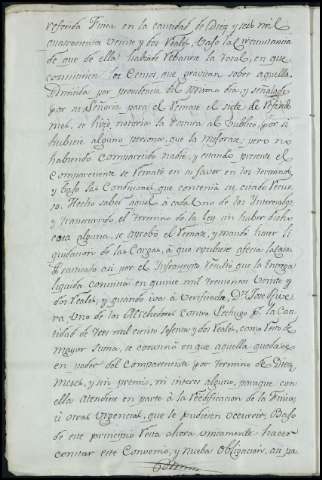 referida Finca en la cantidad de Diez y seis mil
quatrocientos veinte y dos Reales, bajo la circunstancia
de que de ella habia de rebajarse la total, en que
consistieren los Censos, que gravitan sobre aquella
Admitida por providencia del propio dia, y señalado
por su Señoria para el Remate el siete de
se hizo notoria la Postura al Publico, por si
hubiere alguna persona, que la mejorase, pero no
habiendo comparecido nadie, y estando presente el
Compareciente se Remató en su favor en los terminos,
y bajo las Condiciones, que contenia su citado
Hecho saber aquel à cada uno de los Interesados
y transcurrido el termino de la ley sin haber dicho
cosa alguna, se aprobó el Remate, y mandó hacer li
quidacion de las Cargas, à que estubiese afecta la Casa
Practicado asi por el Infraescrito resultó que la entrega
liquida consistia en quince mil trescientos veinte y
dos Reales, y quando iva à verificarla, Dn. Jose
uno de los Acrehedores contra por la Can
tidad de tres mil ciento setenta y dos Reales, como parte de
mayor Suma, se convinó en que aquella quedase
en poder del Compareciente por termino de Diez
meses, y sin premio, ni interes alguno, para que con
ellos atendiese en parte à la Reedificacion de la Finca,
ù otras urgencias, que le pudiesen ocurrir; Bajo
de este principio trata ahora unicamente hacer
constar este Convenio, y nueba Obligacion, asi pa